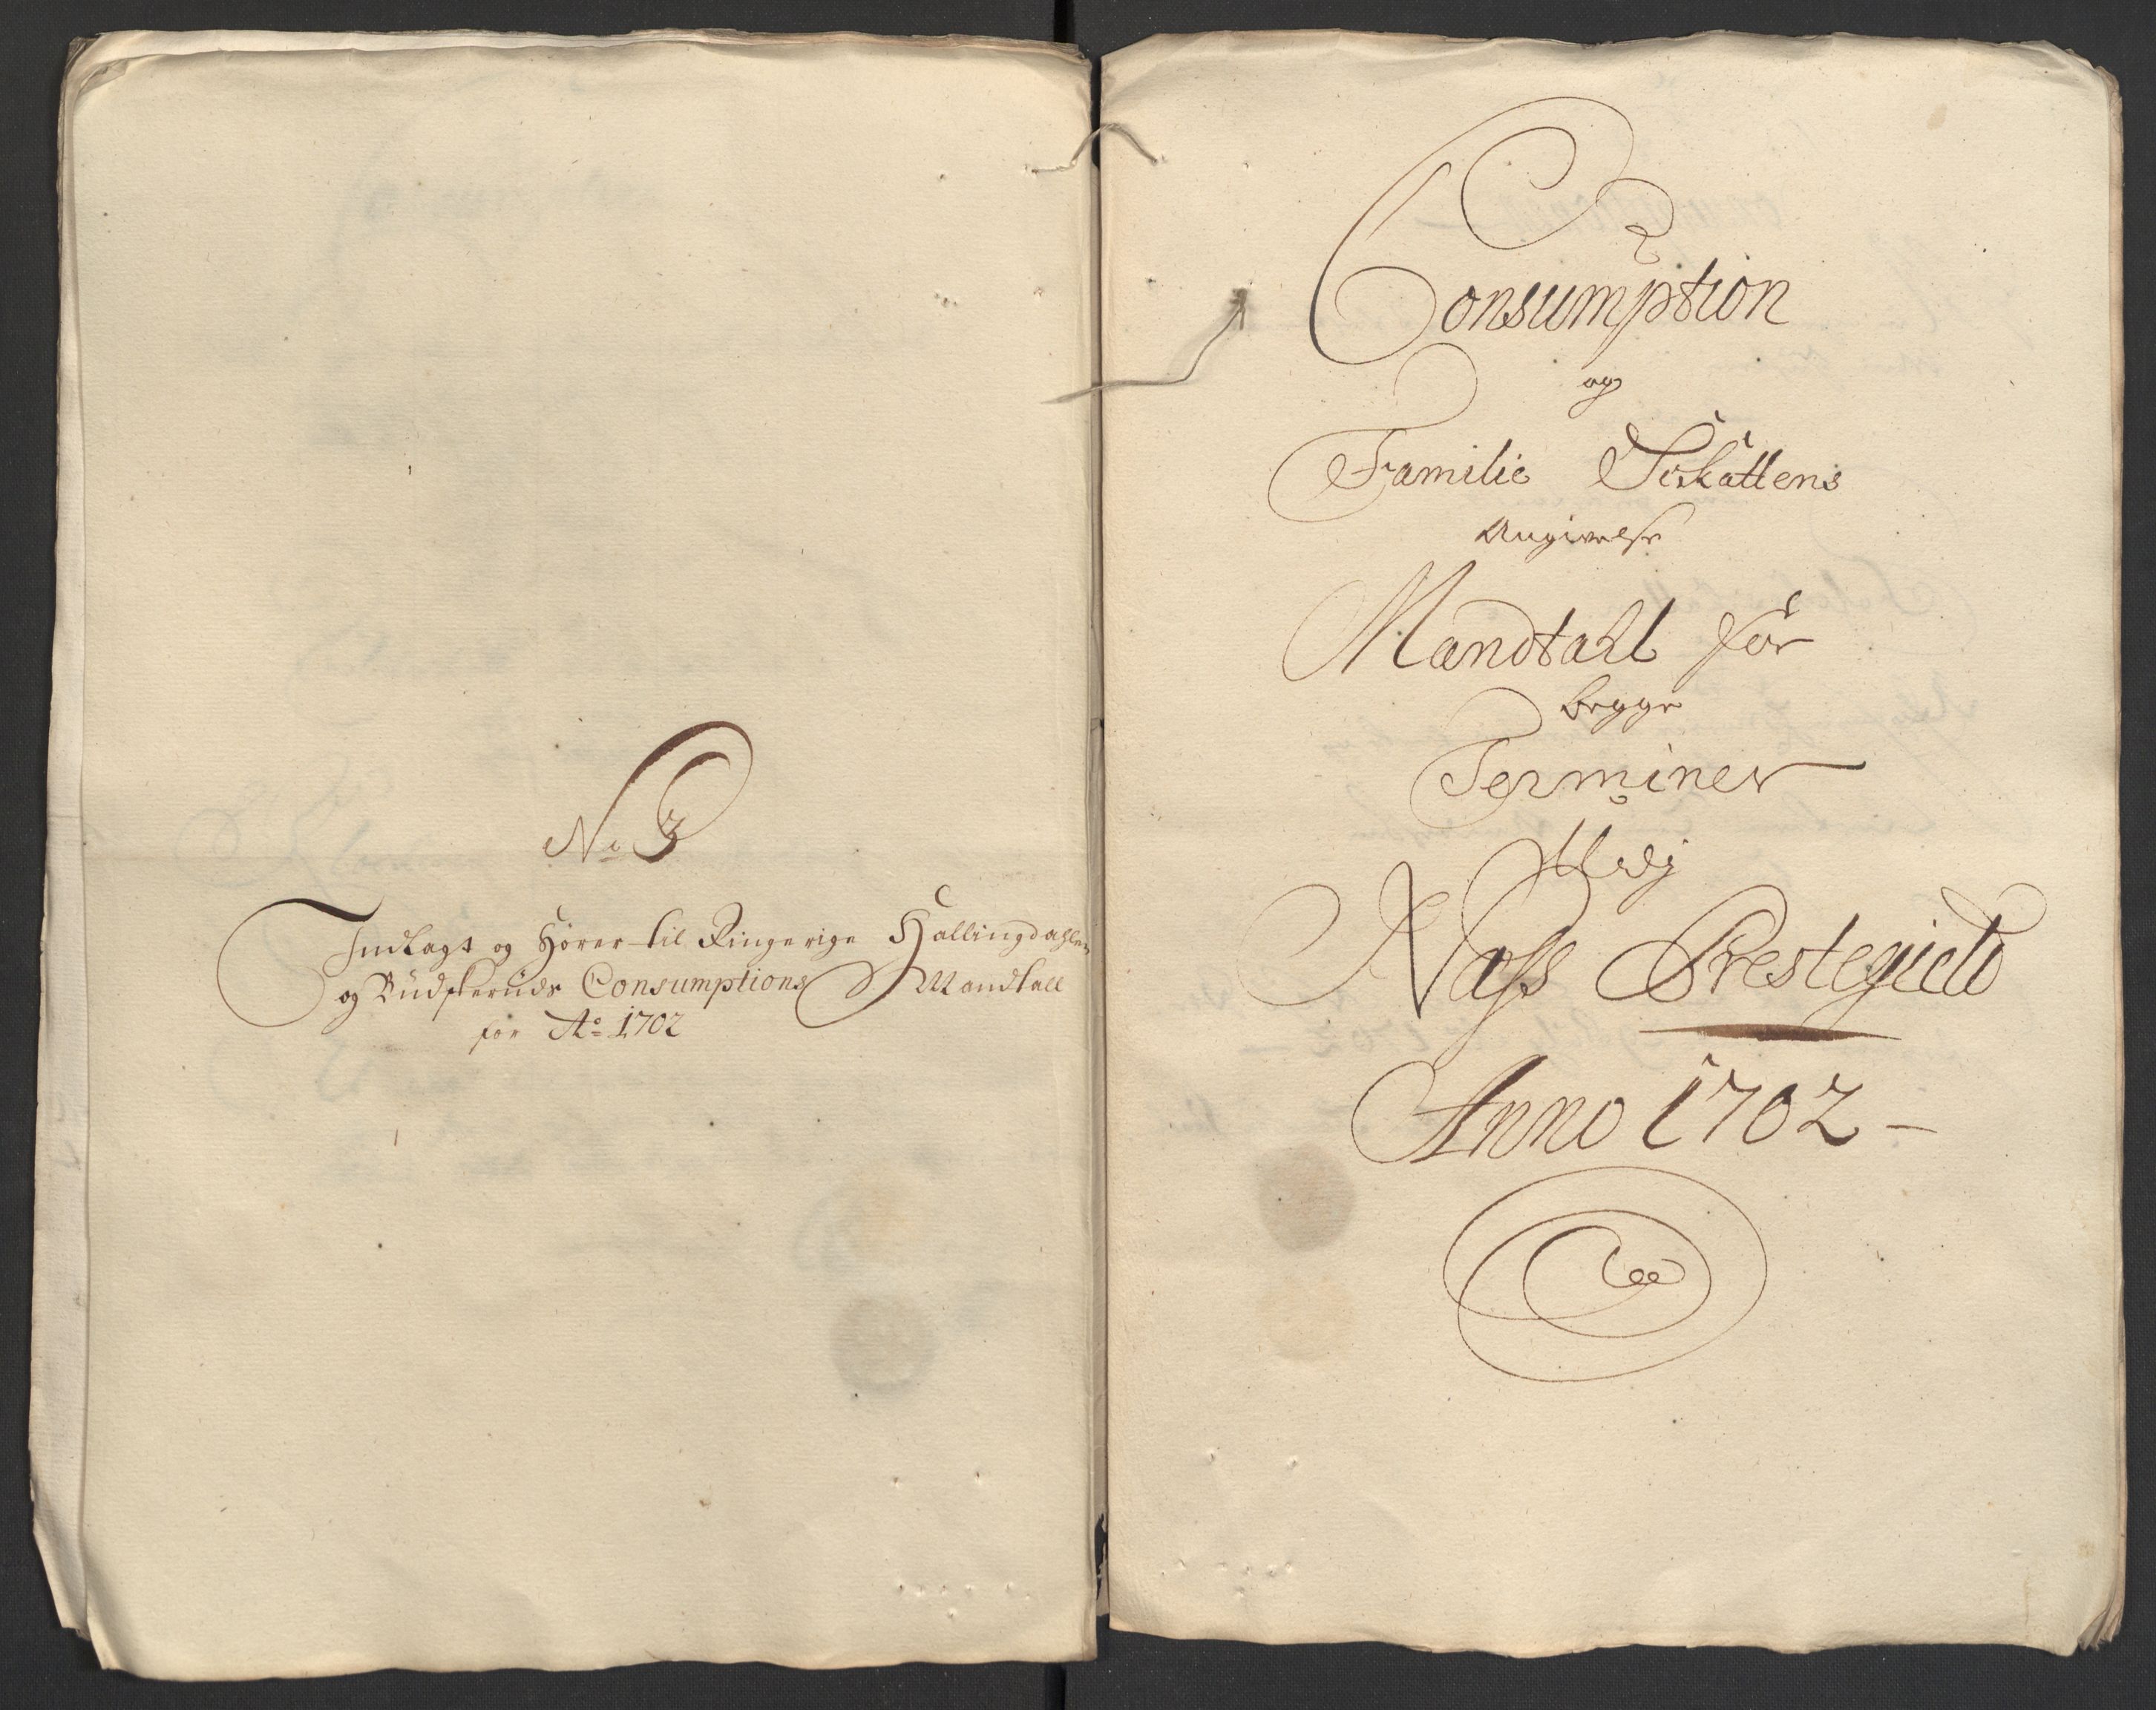 No 3
Indlagt og Hörer til Ringerige Hallingdahlen
og Büdscheruds Consumptions Mandtall
for Ao 1702
Consumption
og
Familie Skattens
Angivelse
Mandtahl for
begge
Terminer
Udj
Næss Prestegield
Anno 1702 -